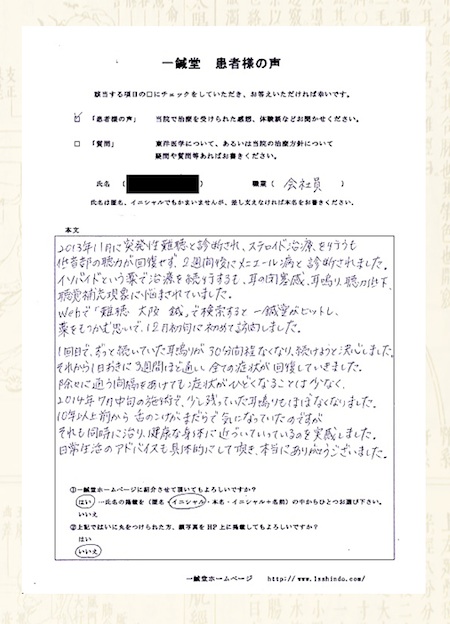 一鍼堂 患者様の声
該当する項目の□にチェックをしていただき、お答えいただければ幸いです。
☑ 「患者様の声」 当院で治療を受けられた感想、体験談などお聞かせください。
□ 「質問」 東洋医学について、あるいは当院の治療方針について
疑問や質問等あればお書きください。
氏名 ( ) 職業 ( 会社員 )
氏名は匿名、イニシャルでもかまいませんが、差し支えなければ本名をお書きください。
本文
2013年11月に突発性難聴と診断され、ステロイド治療を行うも
低音部の聴力が回復せず、2週間後にメニエール病と診断されました。
イソバイドという薬で治療を続行するも、耳の閉塞感、耳鳴り、聴力低下、
聴覚補充現象に悩まされていました。
Webで「難聴 大阪 鍼」で検索すると一鍼堂がヒットし、
藁をもつかむ思いで、12月初旬に初めて訪問しました。
1回目で、ずっと続いていた耳鳴りが30分間程なくなり、続けようと決心しました。
それから1日おきに3週間ほど通い、全ての症状が回復していきました。
除々に通う間隔をあけても症状がひどくなることは少なく、
2014年7月中旬の施術で、少し残っていた耳鳴りもほぼなくなりました。
10年以上前から舌のこけがまだらで気になっていたのですが
それも同時に治り、健康な身体に近づいていっているのを実感しました。
日常生活のアドバイスも具体的にして頂き、本当にありがとうございました。
①一鍼堂ホームページに紹介させて頂いてもよろしいですか?
はい …氏名の掲載を(匿名・イニシャル・本名・イニシャル+名前)の中からひとつお選び下さい。
いいえ
②上記ではいに丸をつけられた方、顔写真をHP上に掲載してもよろしいですか?
はい
いいえ
一鍼堂ホームページ http://www.1sshindo.com/